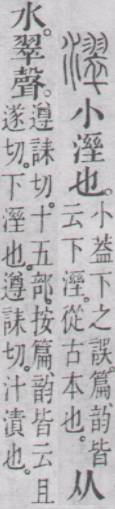 濢小溼也。小葢下之誤。篇、韵皆
云下溼。從古本也。从
水。翠聲。遵誄切。十五部。按篇、韵皆云且
遂切。下溼也。遵誄切。汁漬也。